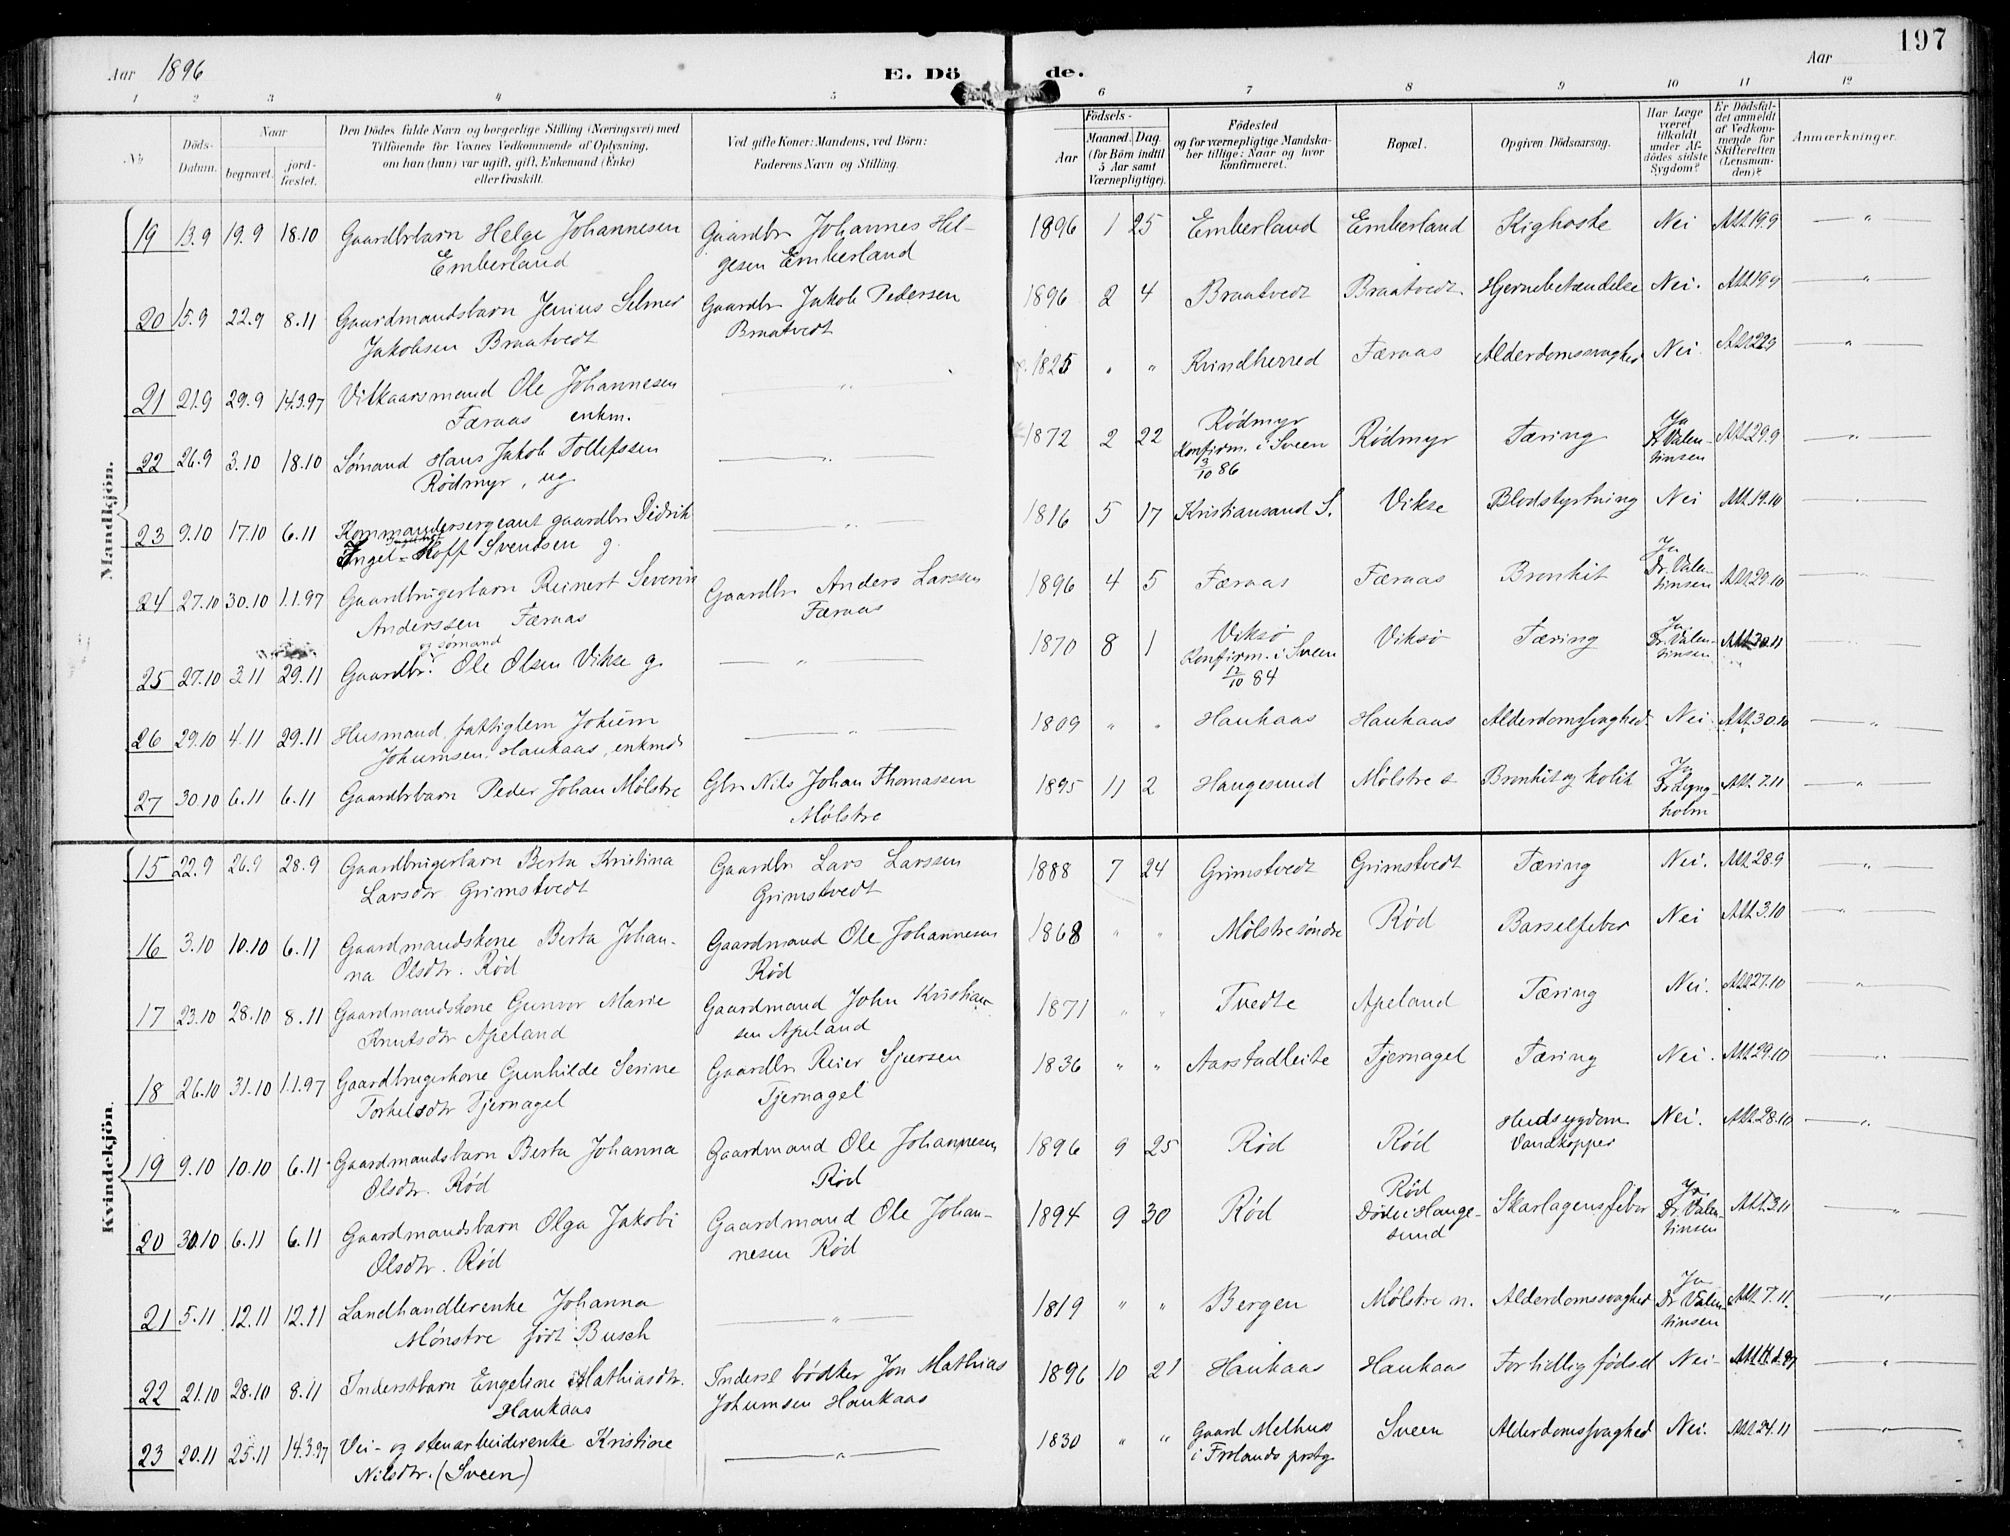 197
Aar 1896
E. Döde.
Aar
1 2 3 4 5 6 7 8 9 10 11 12
No
Döds-Datum.
Naar
begravet.
jord-fæstet.
Den Dödes fulde Navn og borgerlige Stilling (Næringsvei) med
Tilföiende for Voxnes Vedkommende af Oplysning,
om han (hun) var ugift, gift, Enkemand (Enke)
eller fraskilt.
Ved gifte Koner: Mandens, ved Börn:
Faderens Navn og Stilling.
Födsels-
Aar
Maaned. Dag.
(for Börn indtil
5 Aar samt
Værnepligtige).
Födested
og for værnepligtige Mandska-
ber tillige: Naar og hvor
konfirmeret.
Bopæl.
Opgiven Dödsaarsag.
Har Læge
været
tilkaldt
under Af-
dödes sidste
Sygdom?
Er Dödsfal-
det anmeldt
af Vedkom-
mende for
Skifteretten
(Lensman-
den)?
Anmærkninger.
Mandkjön.
19 13.9 19.9 18.10 Gaardbrbarn Helge Johannesen Gaardbr Johannes Hel- 1896 1 25 Emberland Emberland Kighoste Nei Att. 19.9 "
Emberland gesen Emberland
20 15.9 22.9 8.11 Gaardmandsbarn Jenius Selmer Gaardbr Jakob Pedersen 1896 2 4 Braatvedt Braatvedt Hjernebetændelse Nei. Att. 19.9 "
Jakobsen Braatvedt Braatvedt
21 21.9 29.9 14.3.97 Vilkaarsmand Ole Johannesen " 1825 " " Kvindherred Færaas Alderdomssvaghed Nei. Att. 22.9 "
Færaas enkm.
22 26.9 3.10 18.10 Sømand Hans Jakob Tollefssen " 1872 2 22 Rødmyr Rødmyr Tæring Ja Att. 29.9 "
Rødmyr, ug Konfirm. i Sveen Dr Valen-
3/10 86 tinsen
23 9.10 17.10 6.11 Kommandersergeant gaardbr. Didrik " 1816 5 17 Kristiansand S. Vikse Blodstyrtning Nei Att. 19.10 "
Engel Hoff Svendsen g.
24 27.10 30.10 1.1.97 Gaardbrugerbarn Reinert Severin Gaardbr Anders Larssen 1896 4 5 Færaas Færaas Bronkit Ja Att. 29.10 "
Anderssen Færaas Færaas Dr. Valen-
tinsen
og sømand
25 27.10 3.11 29.11 Gaardbr. Ole Olsen Vikse g. " 1870 8 1 Viksø Viksø Tæring Ja Att. 30.11
Konfirm. i Sveen Dr. Valen-
12/10 84 tinsen.
26 29.10 4.11 29.11 Husmand, fattiglem Johum " 1809 " " Haukaas Haukaas Alderdomssvaghed. Nei. Att. 30.10 "
Johumsen. Haukaas, enkmd.
27 30.10 6.11 6.11 Gaardbrbarn Peder Johan Mølstre Gbr. Nils Johan Thomassen 1895 11 2 Haugesund Mølstre s Bronkit og kolik Ja Att. 7.11 "
Mølstre Dr Lyng-
holm
Kvindekjön.
15 22.9 26.9 28.9 Gaardbrugerbarn Berta Kristina Gaardbr Lars Larssen 1888 7 24 Grimstvedt Grimstvedt Tæring Nei. Att. 28.9 "
Larsdtr Grimstvedt Grimstvedt
16 3.10 10.10 6.11 Gaardmandskone Berta Johan- Gaardmand Ole Johannesen 1868 " " Mølstre søndre Rød Barselfeber Nei Att. 3.10 "
na Olsdtr. Rød Rød
17 23.10 28.10 8.11 Gaardmandskone Gunvor Marie Gaardmand John Kristian- 1871 " " Tvedte Apeland Tæring Nei. Att. 27.10 "
Knutsdtr Apeland sen Apeland
18 26.10 31.10 1.1.97 Gaardbrugerkone Gunhilde Serine Gaardbr Reier Sjursen 1836 " " Aarstadleite Tjernagel Tæring Nei. Att. 29.10 "
Torkelsdtr Tjernagel Tjernagel
19 9.10 10.10 6.11 Gaardmandsbarn Berta Johanna Gaardmand Ole Johannesen 1896 9 25 Rød Rød Hudsygdom Nei. Att. 28.10 "
Olsdtr. Rød Rød Vandkopper
20 30.10 6.11 6.11 Gaardmandsbarn Olga Jakobi Gaardmand Ole Johan- 1894 9 30 Rød Rød Skarlagensfeber Ja Att. 3.11 "
Olsdtr. Rød nesen Rød Døde i Hauge- Dr. Valen-
sund tinsen
21 5.11 12.11 12.11 Landhandlerenke Johanna " 1819 " " Bergen Mølstre n. Alderdomssvaghed Ja Att. 7.11. "
Mønstre født Busch Dr Valen-
tinsen
22 21.10 28.10 8.11 Inderstbarn Engeline Mathiasdtr. Inderst bødker Jon Mathias 1896 10 21 Haukaas Haukaas For tidlig fødsel Nei "
Haukaas Johumsen Haukaas
23 20.11 25.11 14.3.97 Vei- og stenarbeiderenke Kristine " 1830 " " Gaard Melhus Sveen Alderdomssvaghed Nei. Att. 24.11 "
Nilsdtr. (Sveen) i Frolands prstg.